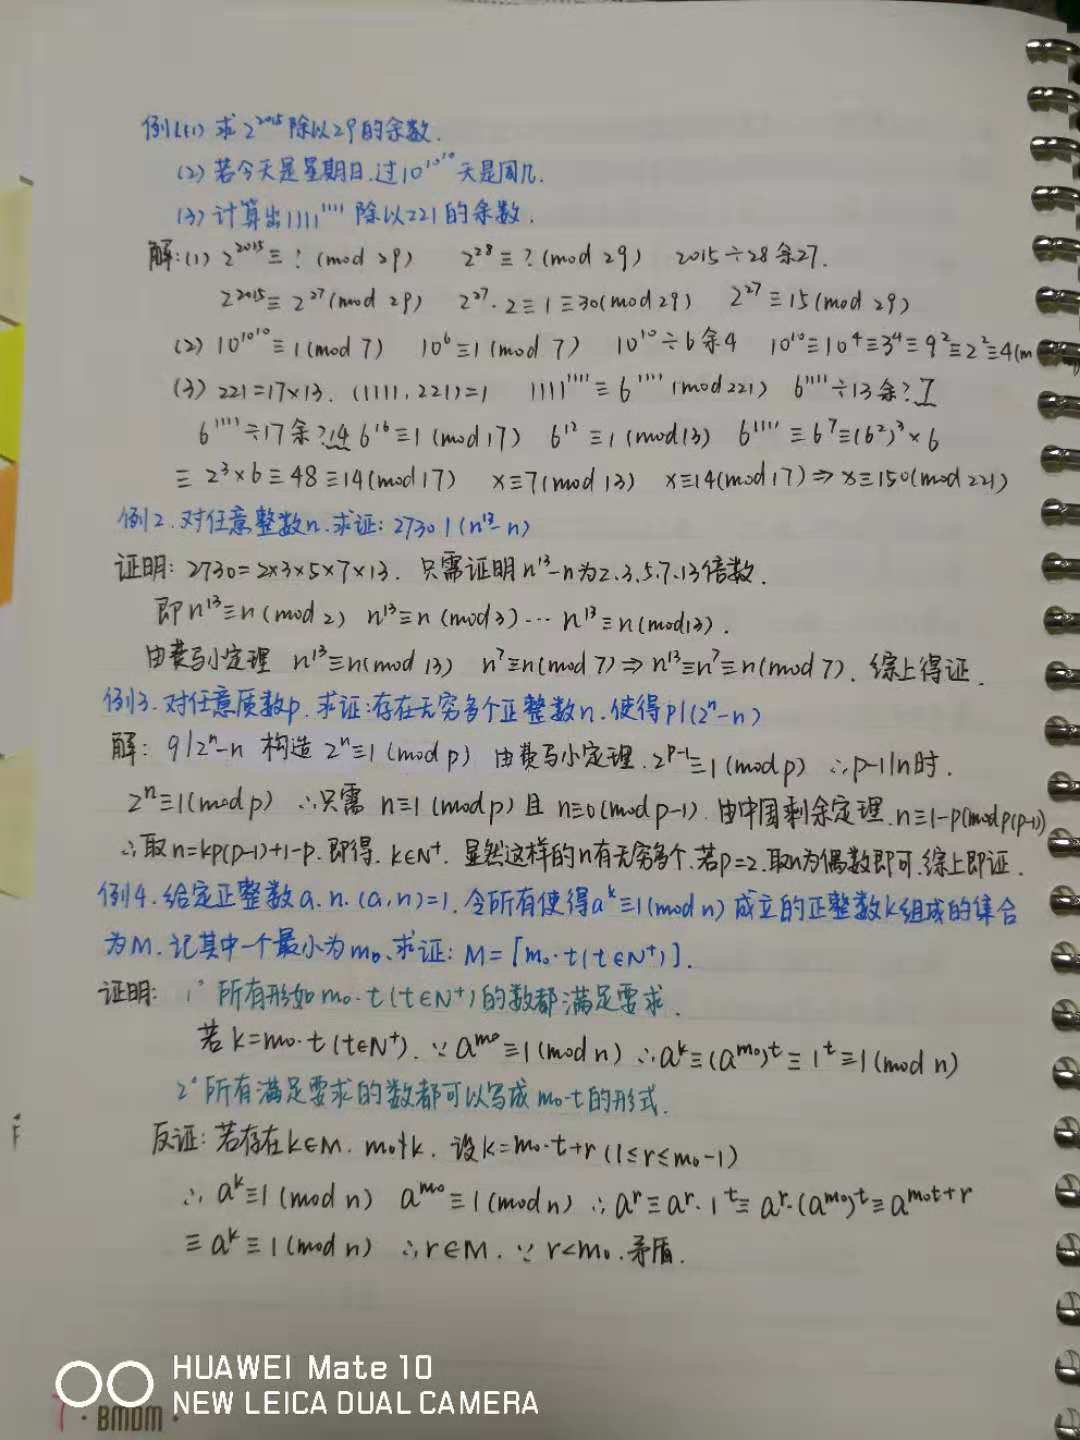 例1(1) 求2^2015除以29的余数.
(2) 若今天是星期日.过10^10^10天是周几.
(3) 计算出1111^1111除以221的余数.
解:(1) 2^2015≡?(mod 29) 2^28≡?(mod 29) 2015÷28余27.
2^2015≡2^27(mod 29) 2^27·2≡1≡30(mod 29) 2^27≡15(mod 29)
(2) 10^10^10≡1(mod 7) 10^6≡1(mod 7) 10^10÷6余4 10^10≡10^4≡3^4≡9^2≡2^2≡4(m
(3) 221=17×13. (1111,221)=1 1111^1111≡6^1111(mod 221) 6^1111÷13余?7
6^1111÷17余?14 6^16≡1(mod 17) 6^12≡1(mod 13) 6^1111≡6^7≡(6^2)^3×6
≡2^3×6≡48≡14(mod 17) x≡7(mod 13) x≡14(mod 17)⇒x≡150(mod 221)
例2.对任意整数n.求证:2730|(n^13-n)
证明:2730=2×3×5×7×13. 只需证明n^13-n为2.3.5.7.13倍数.
即n^13≡n(mod 2) n^13≡n(mod 3)…n^13≡n(mod 13).
由费马小定理 n^13≡n(mod 13) n^7≡n(mod 7)⇒n^13≡n^7≡n(mod 7).综上得证.
例3.对任意质数p.求证:存在无穷多个正整数n.使得p|(2^n-n)
解: 9|2^n-n 构造2^n≡1(mod p) 由费马小定理.2^p-1≡1(mod p) ∴p-1|n时.
2^n≡1(mod p) ∴只需n≡1(mod p)且n≡0(mod p-1).由中国剩余定理.n≡1-p(mod p(p-1))
∴取n=kp(p-1)+1-p.即得.k∈N⁺.显然这样的n有无穷多个.若p=2.取n为偶数即可.综上即证.
例4.给定正整数a.n.(a,n)=1.令所有使得a^k≡1(mod n)成立的正整数k组成的集合
为M.记其中一个最小为m₀.求证:M=[m₀·t(t∈N⁺)].
证明: 1°所有形如m₀·t(t∈N⁺)的数都满足要求.
若k=m₀·t(t∈N⁺).∵a^m₀≡1(mod n) ∴a^k≡(a^m₀)^t≡1^t≡1(mod n)
2°所有满足要求的数都可以写成m₀·t的形式.
反证:若存在k∈M.m₀∤k.设k=m₀·t+r(1≤r≤m₀-1)
∴a^k≡1(mod n) a^m₀≡1(mod n) ∴a^r≡a^r·1^t≡a^r·(a^m₀)^t≡a^m₀t+r
≡a^k≡1(mod n) ∴r∈M.∵r<m₀.矛盾.
HUAWEI Mate 10
NEW LEICA DUAL CAMERA
7·BMDM·